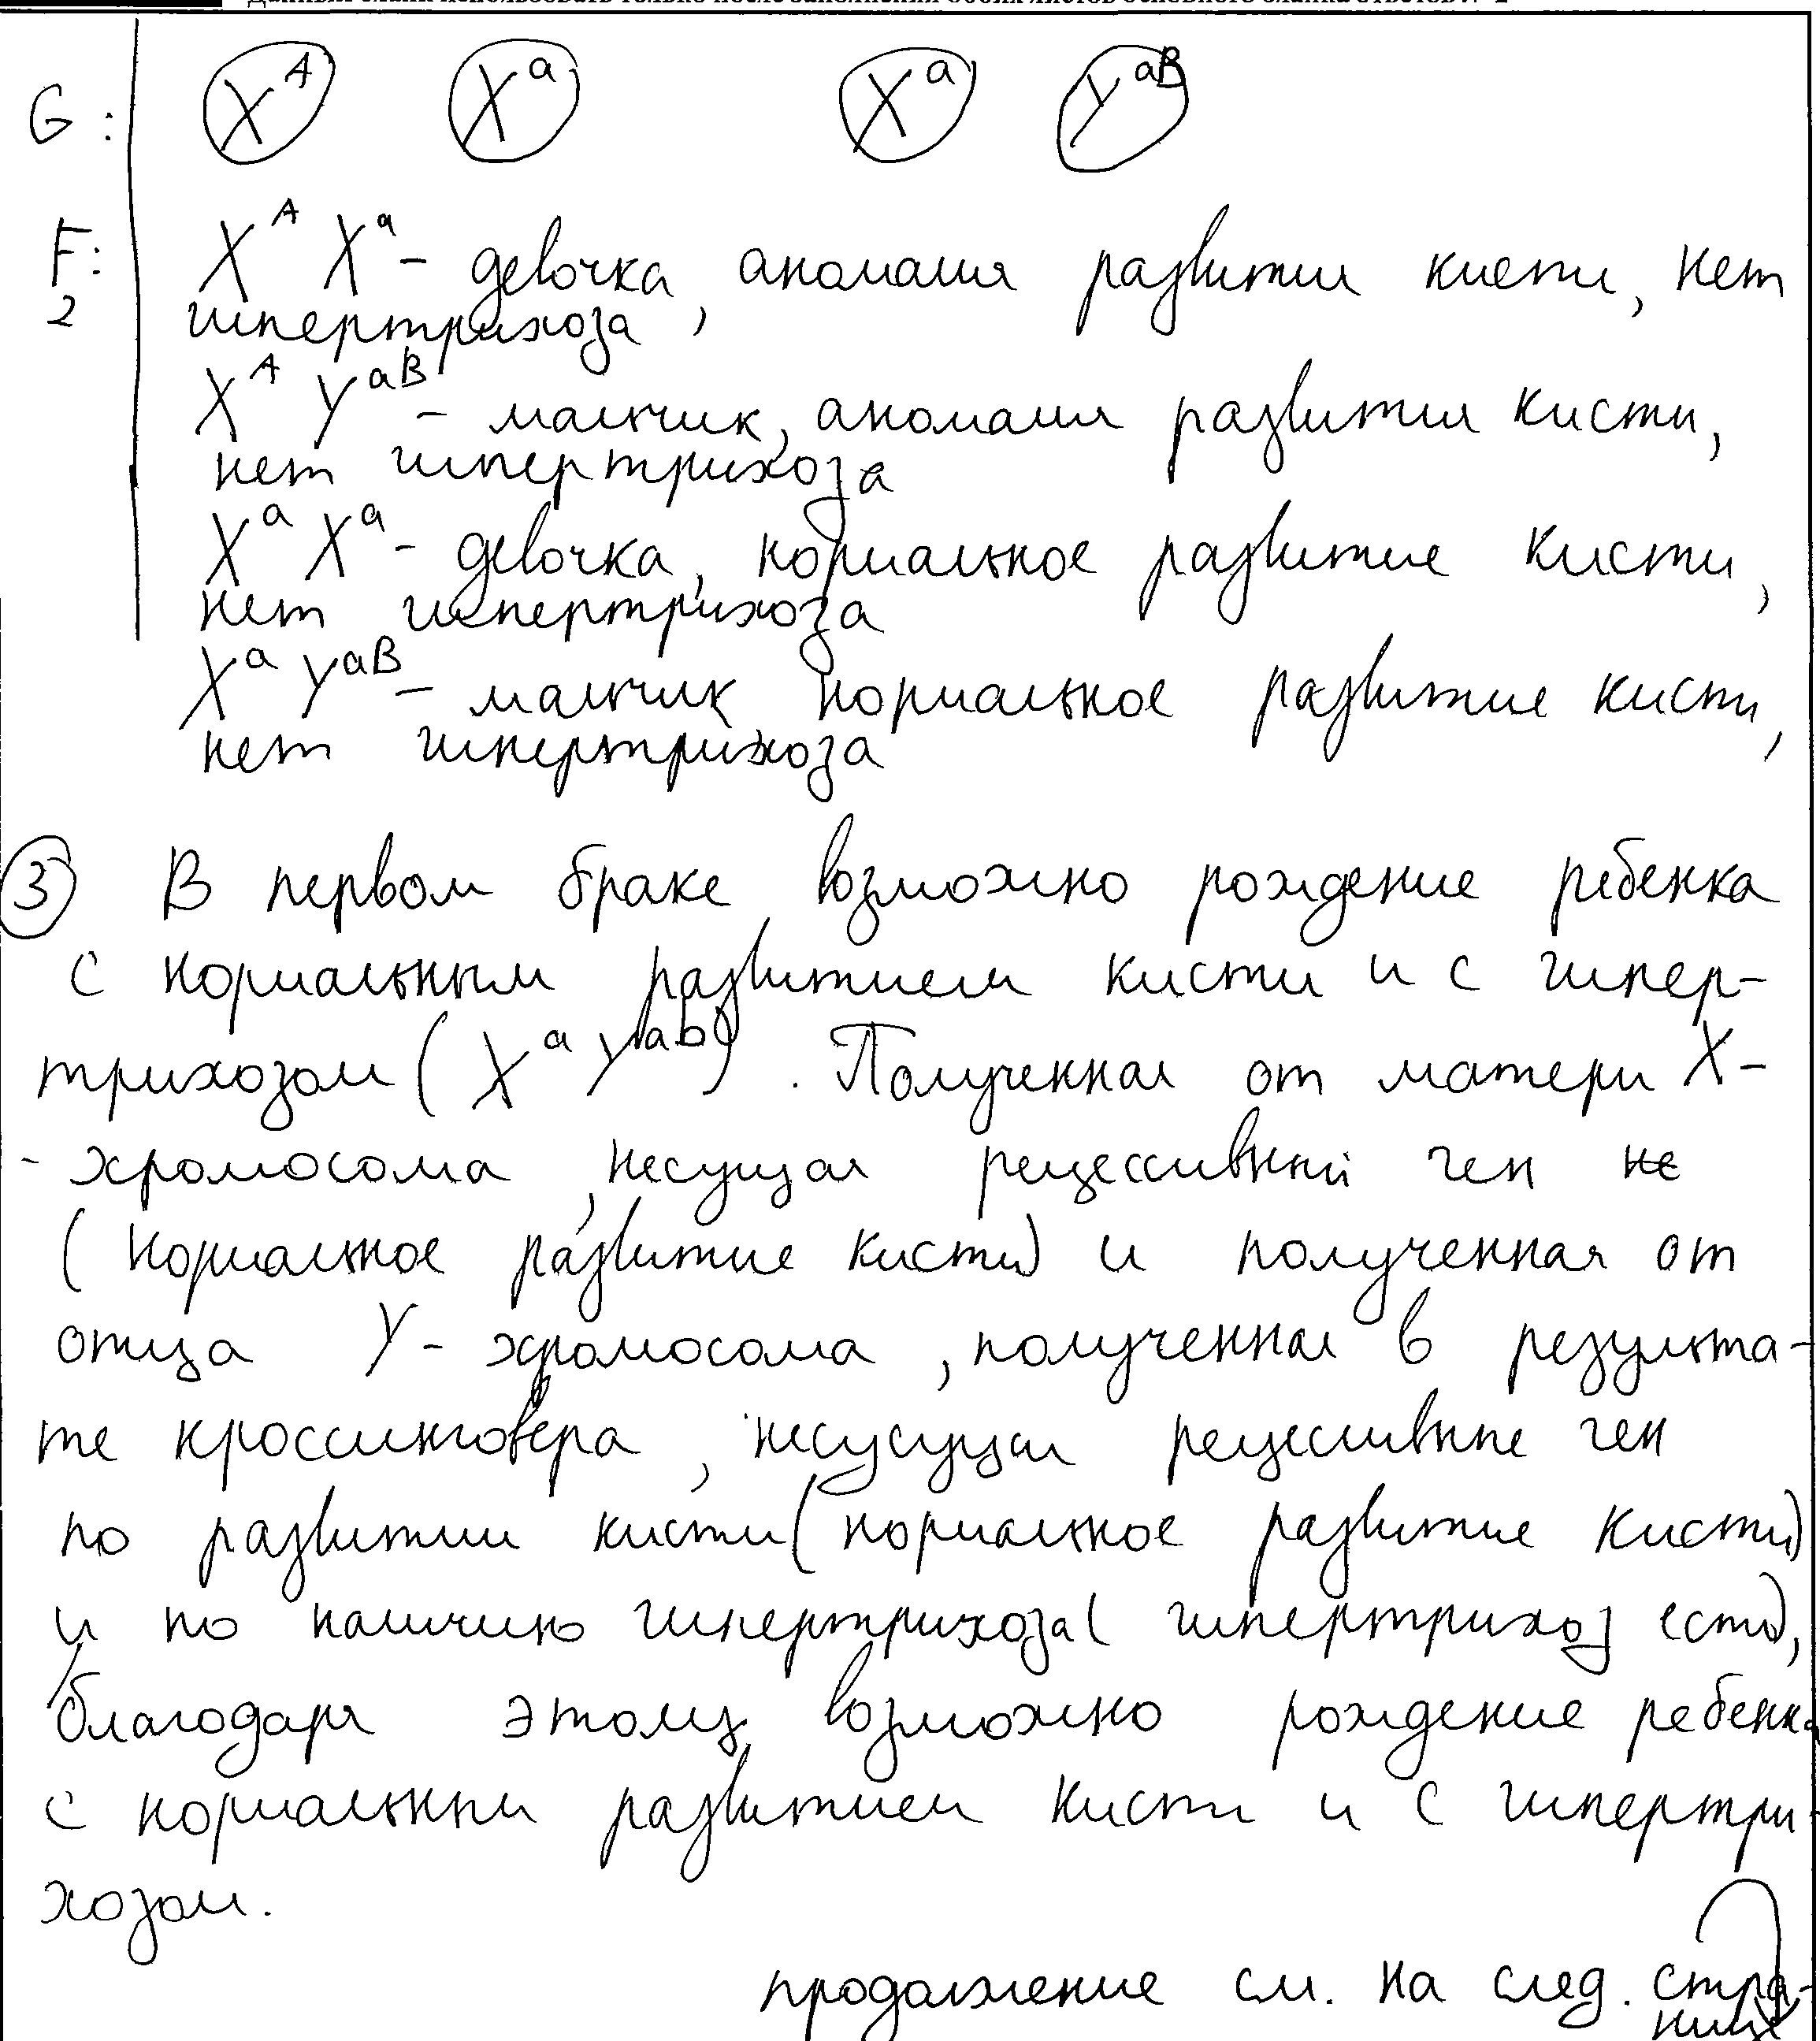 G: X^A X^a X^a Y^aB
F2: X^A X^a - девочка, аномалия развития кисти, нет
гипертрихоза
X^A Y^aB - мальчик, аномалия развития кисти,
нет гипертрихоза
X^a X^a - девочка, нормальное развитие кисти,
нет гипертрихоза
X^a Y^aB - мальчик нормальное развитие кисти,
нет гипертрихоза
3 В первом браке возможно рождение ребенка
с нормальным развитием кисти и с гипер-
трихозом (X^a Y^ab). Полученная от матери X-
- хромосома, несущая рецессивный ген не
(нормальное развитие кисти) и полученная от
отца Y- хромосома, полученная в результа-
те кроссинговера, несусущая рецессивные ген
по развитии кисти (нормальное развитие кисти)
и по наличию гипертрихоза (гипертрихоз есть),
благодаря этому возможно рождение ребенка
с нормальным развитием кисти и с гипертри-
хозом.
продолжение см. на след. стра-
нице